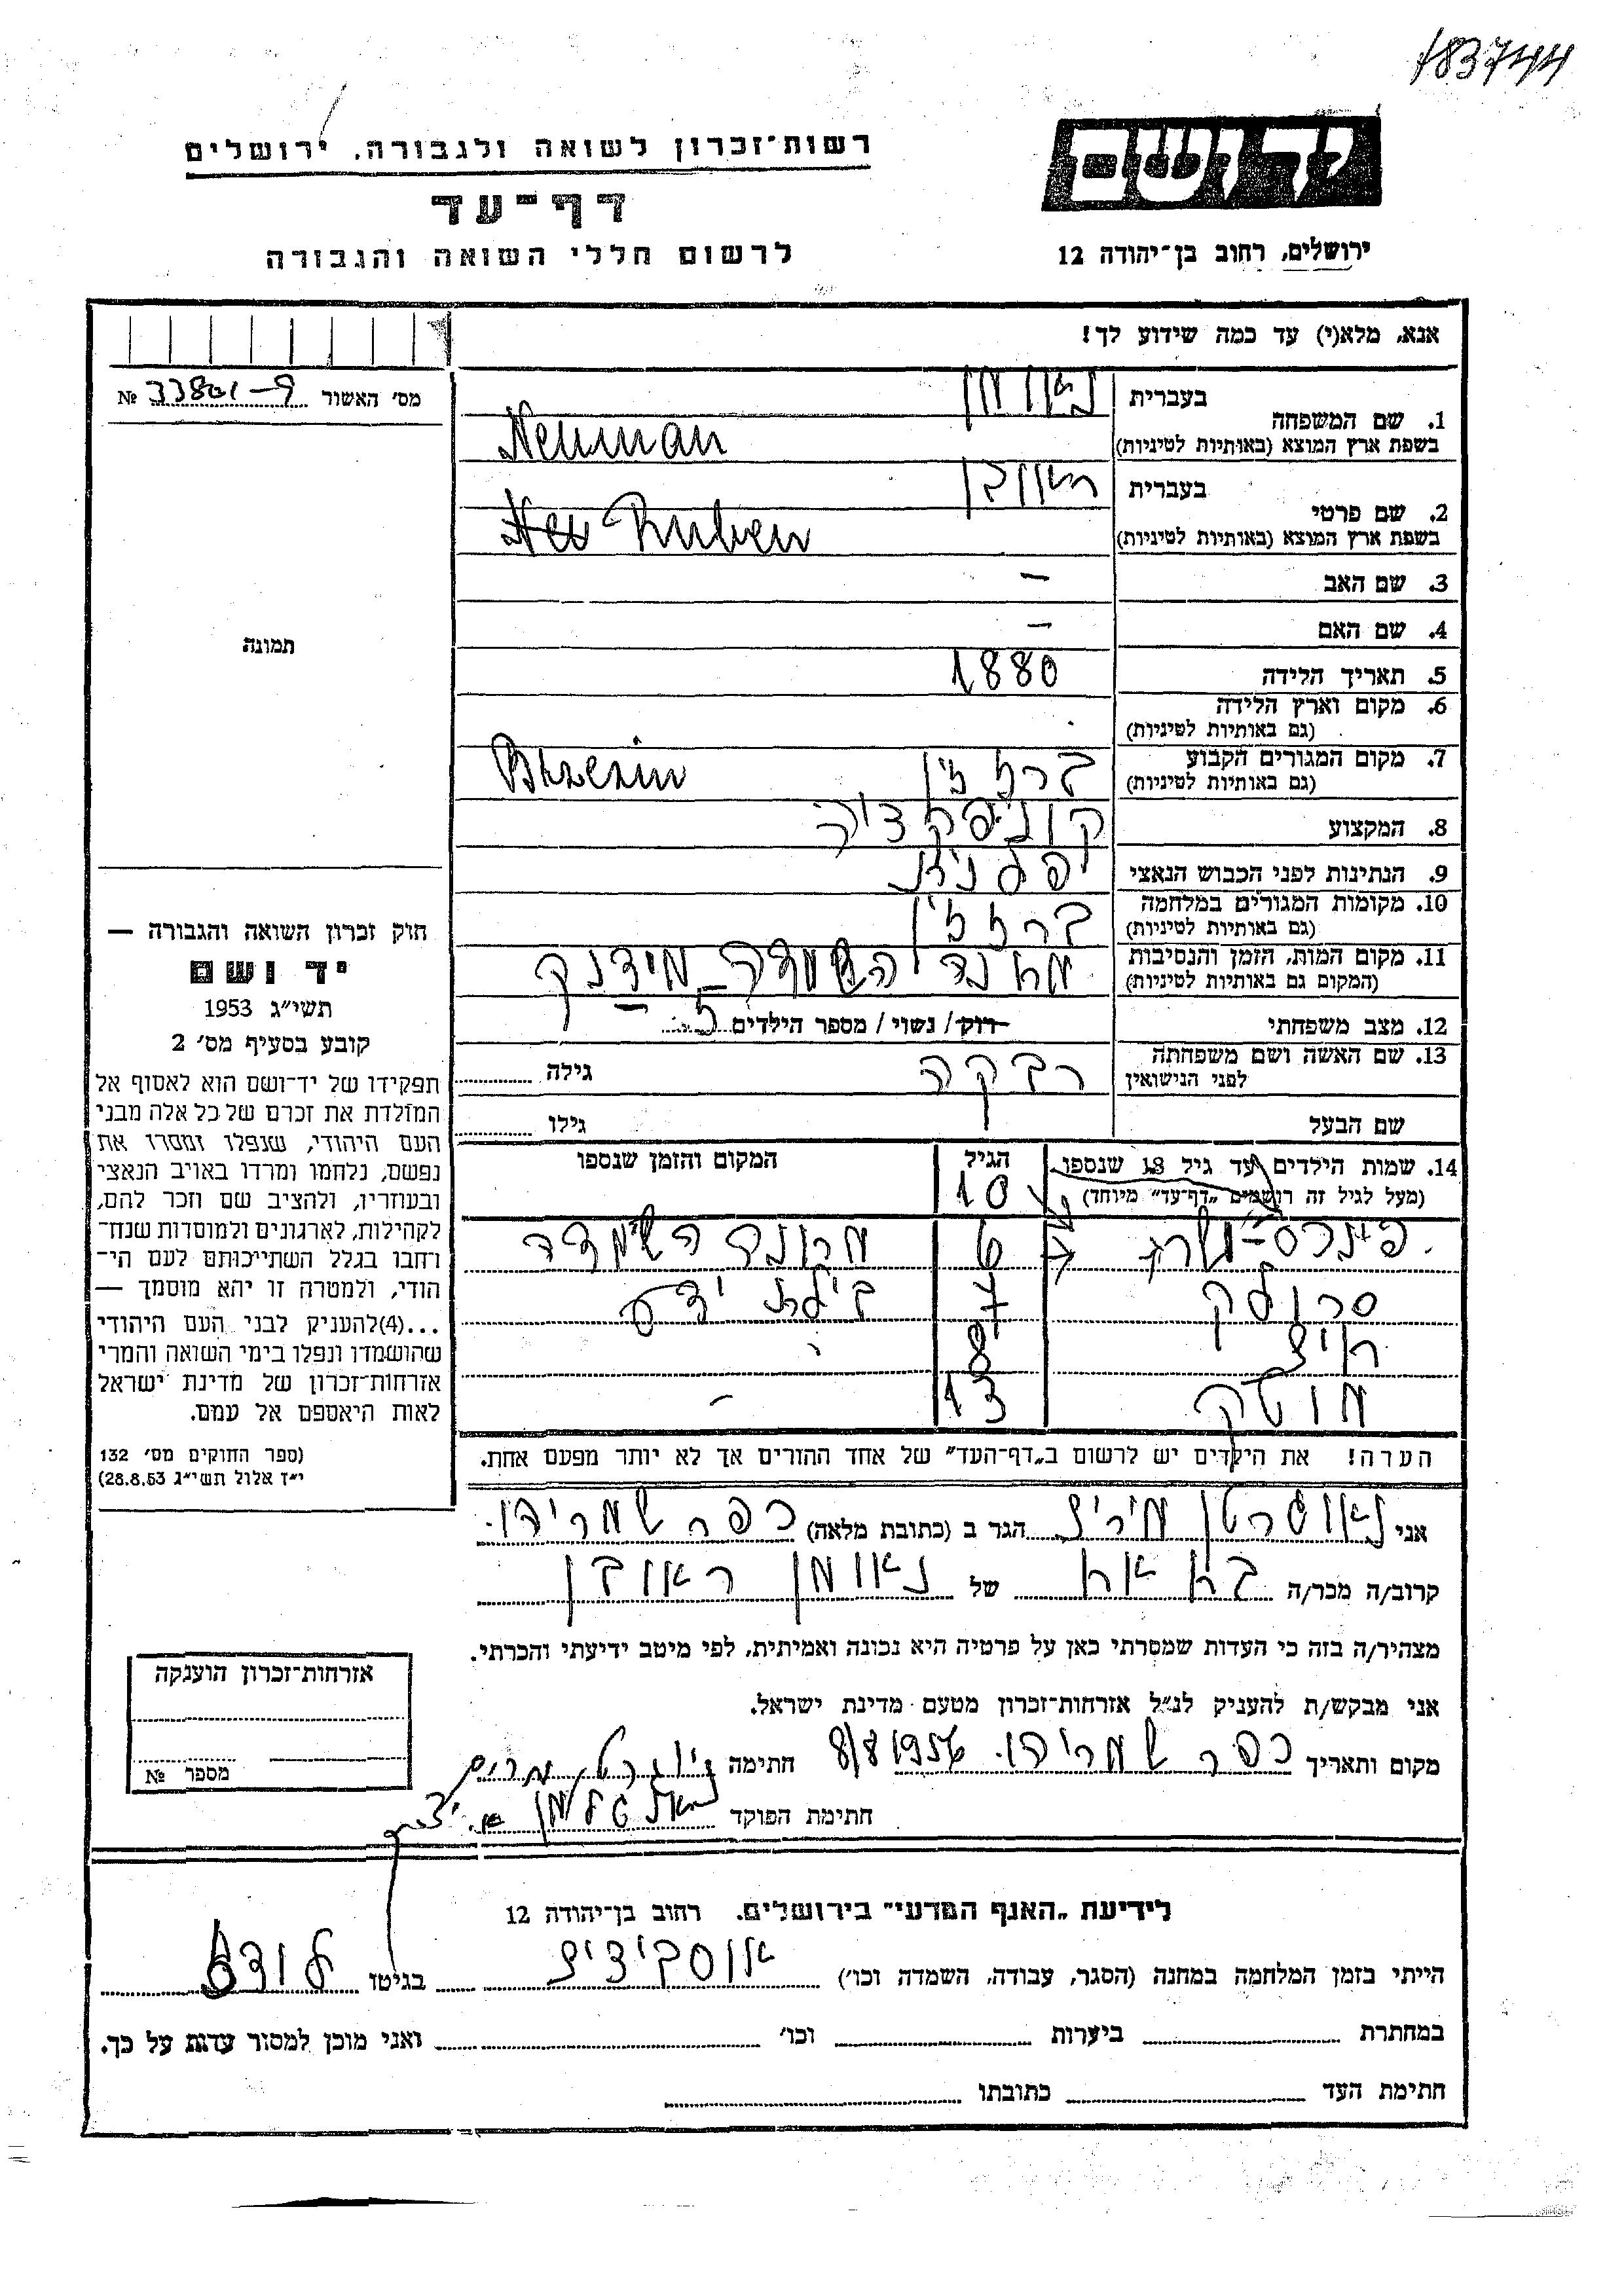 183744
יד ושם
רשות־זכרון לשואה ולגבורה, ירושלים
דף־עד
ירושלים, רחוב בן־יהודה 12
לרשום חללי השואה והגבורה
אנא, מלא(י) עד כמה שידוע לך!
מס׳ האשור № 33801-9
1. שם המשפחה
בעברית נאומן
בשפת ארץ המוצא (באותיות לטיניות) Neuman
2. שם פרטי
בעברית ראובן
בשפת ארץ המוצא (באותיות לטיניות) Ruben
3. שם האב –
4. שם האם –
5. תאריך הלידה 1880
6. מקום וארץ הלידה
(גם באותיות לטיניות)
7. מקום המגורים הקבוע
(גם באותיות לטיניות) ברזזין Bzezin
8. המקצוע
9. הנתינות לפני הכבוש הנאצי
10. מקומות המגורים במלחמה
(גם באותיות לטיניות) ברזזין
11. מקום המות, הזמן והנסיבות
(המקום גם באותיות לטיניות) מחנה השמדה – מידנק
12. מצב משפחתי רוק/ נשוי/ מספר הילדים
13. שם האשה ושם משפחתה
לפני הנישואין רבקה גילה
שם הבעל גילו
14. שמות הילדים עד גיל 18 שנספו הגיל המקום והזמן שנספו
(מעל לגיל זה רושמים „דף־עד״ מיוחד) 10
6 מחנה השמדה
סרולק 7 בילתי ידוע
8
מוטק 13 –
הערה! את הילדים יש לרשום ב„דף־העד״ של אחד ההורים אך לא יותר מפעם אחת.
תמונה
חוק זכרון השואה והגבורה —
יד ושם
תשי״ג 1953
קובע בסעיף מס׳ 2
תפקידו של יד־ושם הוא לאסוף אל
המולדת את זכרם של כל אלה מבני
העם היהודי, שנפלו ומסרו את
נפשם, נלחמו ומרדו באויב הנאצי
ובעוזריו, ולהציב שם וזכר להם,
לקהילות, לארגונים ולמוסדות שנח־
רבו בגלל השתייכותם לעם הי־
הודי, ולמטרה זו יהא מוסמך —
...(4)להעניק לבני העם היהודי
שהושמדו ונפלו בימי השואה והמרי
אזרחות־זכרון של מדינת ישראל
לאות היאספם אל עמם.
(ספר החוקים מס׳ 132
י״ז אלול תשי״ג 28.8.53)
אני הגר ב (כתובת מלאה) כפר שמריהו
קרוב/ה מכר/ה של נאומן ראובן
מצהיר/ה בזה כי העדות שמסרתי כאן על פרטיה היא נכונה ואמיתית, לפי מיטב ידיעתי והכרתי.
אני מבקש/ת להעניק לנ״ל אזרחות־זכרון מטעם מדינת ישראל.
מקום ותאריך כפר שמריהו 8/8 1956 חתימה
חתימת הפוקד
אזרחות־זכרון הוענקה
מספר №
לידיעת „האגף המדעי״ בירושלים. רחוב בן־יהודה 12
הייתי בזמן המלחמה במחנה (הסגר, עבודה, השמדה וכו׳) אוסבידיץ בגיטו לודז
במחתרת ביערות וכו׳ ואני מוכן למסור עדות על כך.
חתימת העד כתובתו